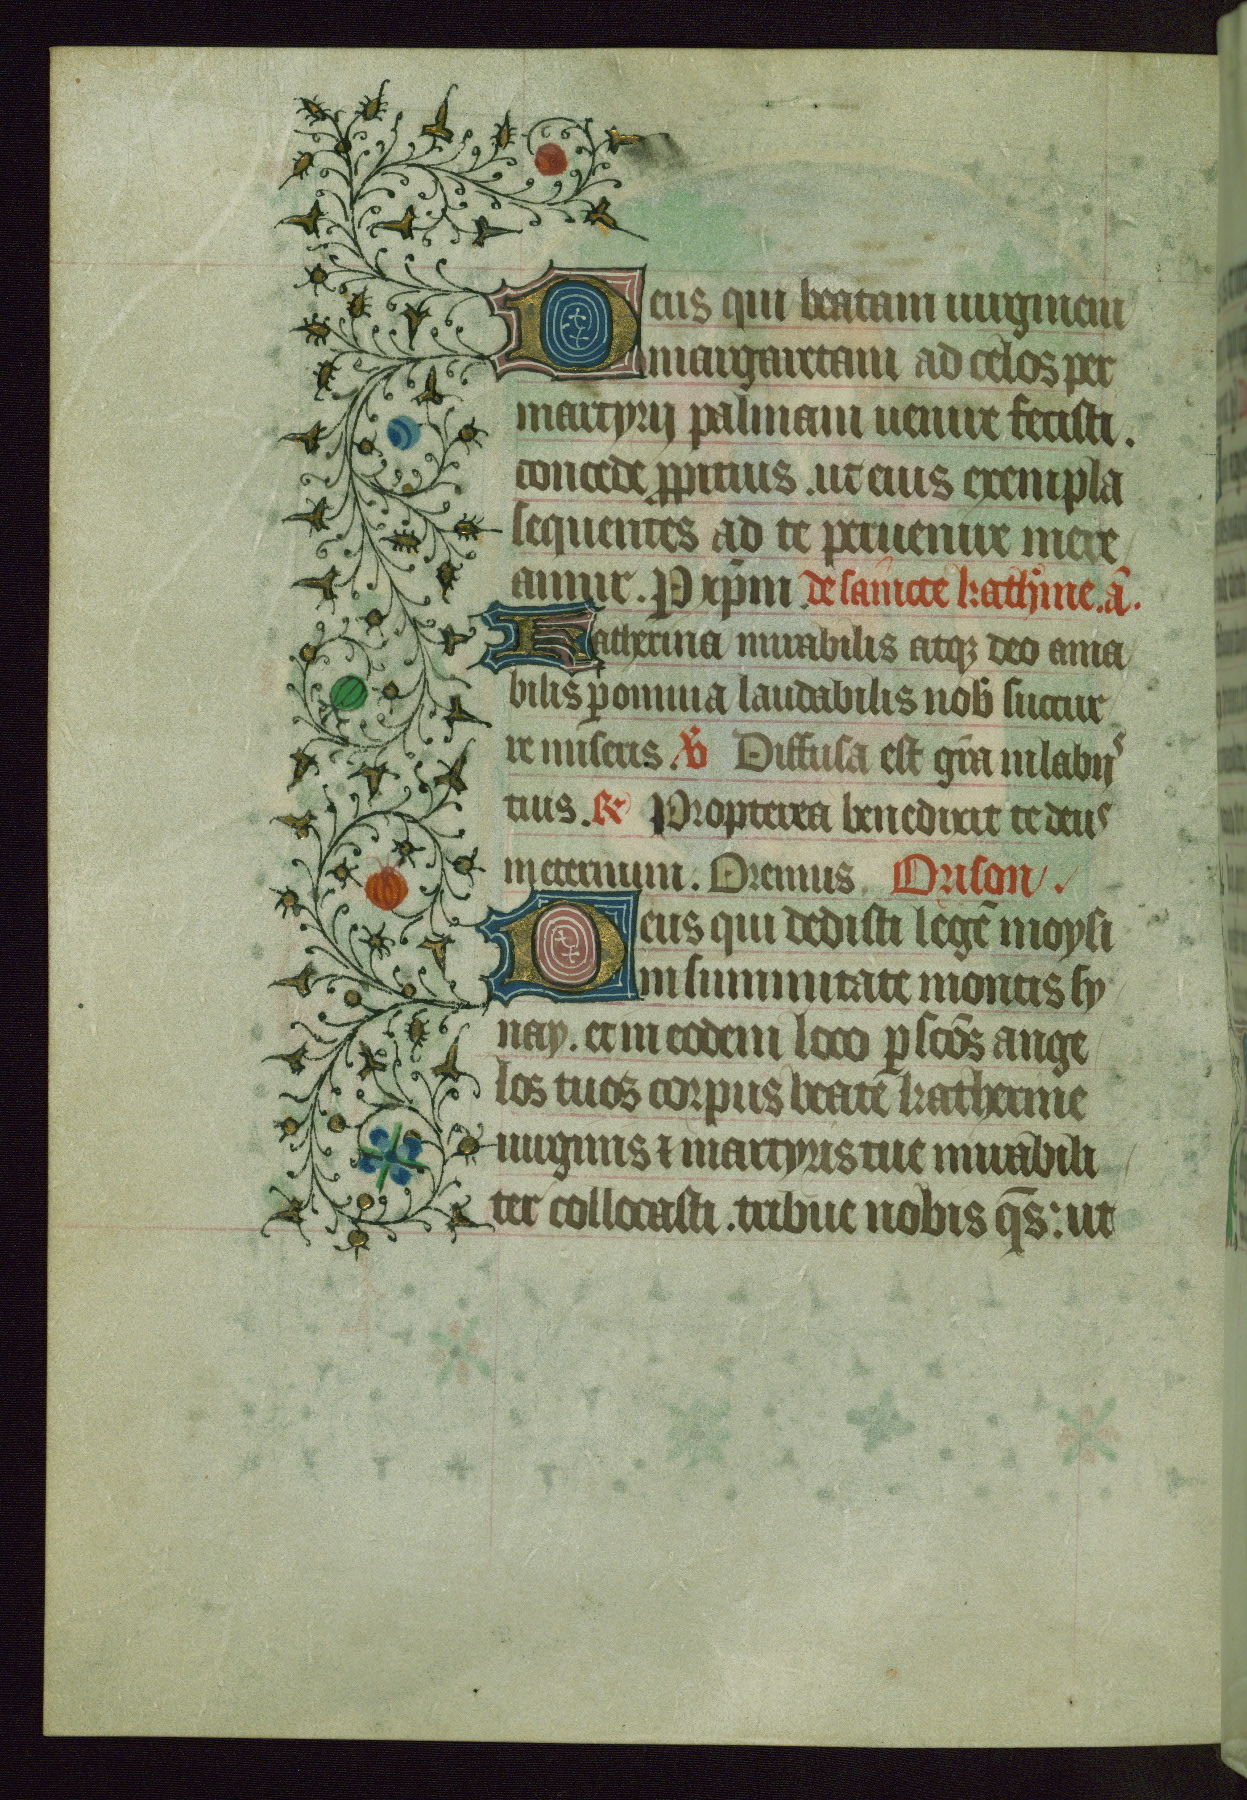 Deus qui beatam uirginem
margaretam ad celos per
martyrij palmam uenire fecisti.
concede ꝓpitius . ut eius exempla
sequentes ad te peruenire mere
amur . P xp̄m . de sancte kath'ine . a᷃ .
Katherina mirabilis atqꝫ deo ama
bilis ꝑ omnia laudabilis nob̄ succur
re miseris . ℣ Diffusa est gr̄a in labijˢ
tuis . ℟ Propterea benedixit te deuˢ
in eternum . Oremus Orison .
Deus qui dedisti legē moysi
in summitate montis sy
nay . et in eodem loco ꝑ sc̄os ange
los tuos corpus beate katherine
uirginis ⁊ martyris tue mirabili
ter collocasti . tribue nobis q̄s : ut